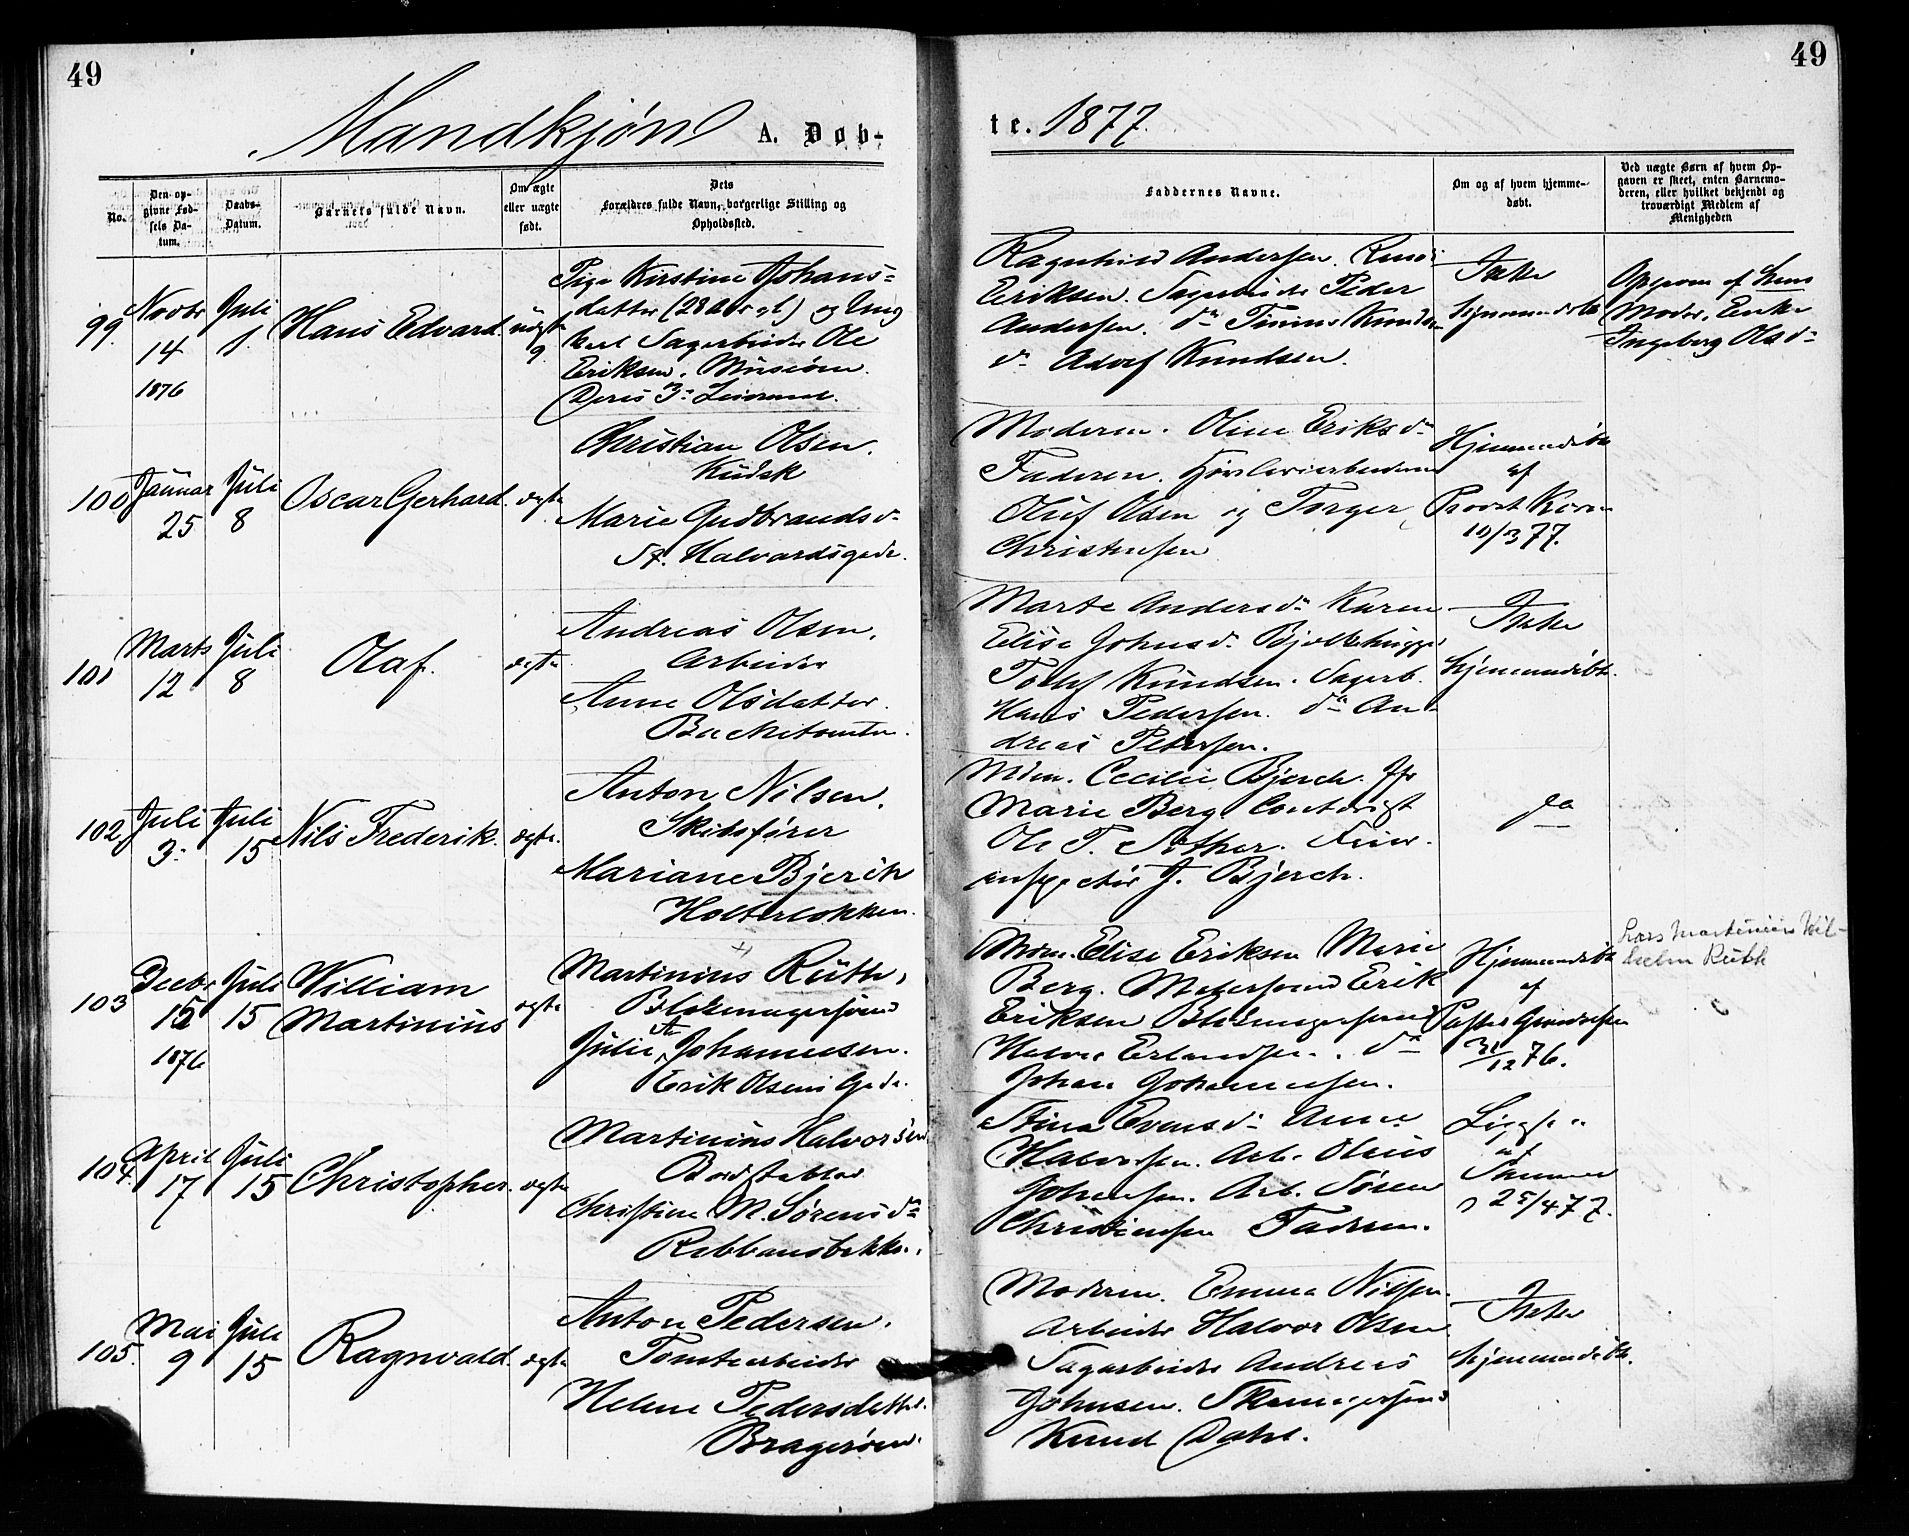 49
49
Mandkjøn A. Døb-
te. 1877.
No.
Den op-
givne Fød-
sels Da-
tum.
Daabs-
Datum.
Barnets fulde Navn.
Om ægte
eller uægte
født.
Dets
Forældres fulde Navn, borgerlige Stilling og
Opholdssted.
Faddernes Navne.
Om og af hvem hjemme-
døbt.
Ved uægte Børn af hvem Op-
gaven er skeet, enten Barnemo-
deren, eller hvilket bekjendt og
troværdigt Medlem af
Menigheden
99.
Novbr
14
1876
Juli
1.
Hans Edvard.
uægte
Pige Kirstine Johans-
datter (28 Aar gl) og Ung
karl Sagarbeider Ole
Eriksen.
Deres 3:
Ragnhild Andersen.
Eriksen. Sagarbeider Peder
Andersen. do Knudsen
do Adolf Knudsen.
Ikke
hjemmedøbt
Opgiven af hans
Moder, Enke
Ingeborg Olsd-
100
Januar
25
Juli
8
Oscar Gerhard.
ægte
Christian Olsen.
Kudsk
Marie Gudbrandsd-
St. Halvardsgade.
Moderen. Oline Eriksd-
Faderen.
Oluf Olsen og Torger
Christensen
Hjemmedøbt
af
Provst
10/3 77.
101
Marts
12
Juli
8
Olaf.
ægte
Andreas Olsen.
Arbeider
Anne Olsdatter.
Bakketomten.
Marte Andersd- Karen
Elise Johnsd- Bjelkehugger
Knudsen. Sagarb.
Hans Pedersen. do An-
dreas Petersen.
Ikke
hjemmedøbt.
102
Juli
3:
Juli
15
Nils Frederik.
ægte.
Anton Nilsen.
Skibsfører
Mariane Bjerck
Holterløkken.
Mdm. Cecilie Bjerch. Jfr
Marie Berg
Ole T.
J. Bjerch.
do
103
Decbr
15
1876
Juli
15
William
Martinius
ægte
Martinius Ruth,
Blokmagersvend
Julie Johannesen.
Erik Olsens Gade.
Mdm. Elise Eriksen Marie
Berg. Malersvend Erik
Eriksen Blokmagersvend
Halvor Erlandsen. do
Johan Johannesen.
Hjemmedøbt
af
Pastor Gundersen
31/12 76.
Lars Martinius Wil-
helm Ruth
104.
April
17
Juli
15
Christopher.
ægte
Martinius Halvorsen
Bordstabler
Christine M. Sørensd-
Robbansbakken.
Stina Evensd- Anne
Halvorsen. Arb. Olaus
Johansen. Arb. Søren
Christensen Faderen.
Ligesaa
af
Samme
25/4 77.
105.
Mai
9
Juli
15
Ragnvald.
ægte
Anton Pedersen.
Tomtearbeider
Helene Pedersdatter.
Bragerøen.
Moderen. Emma Nilsen.
Arbeider Halvor Olsen
Sagarbeider Andreas
Johnsen. Skomagersvend
Knud Dahl.
Ikke
hjemmedøbt.